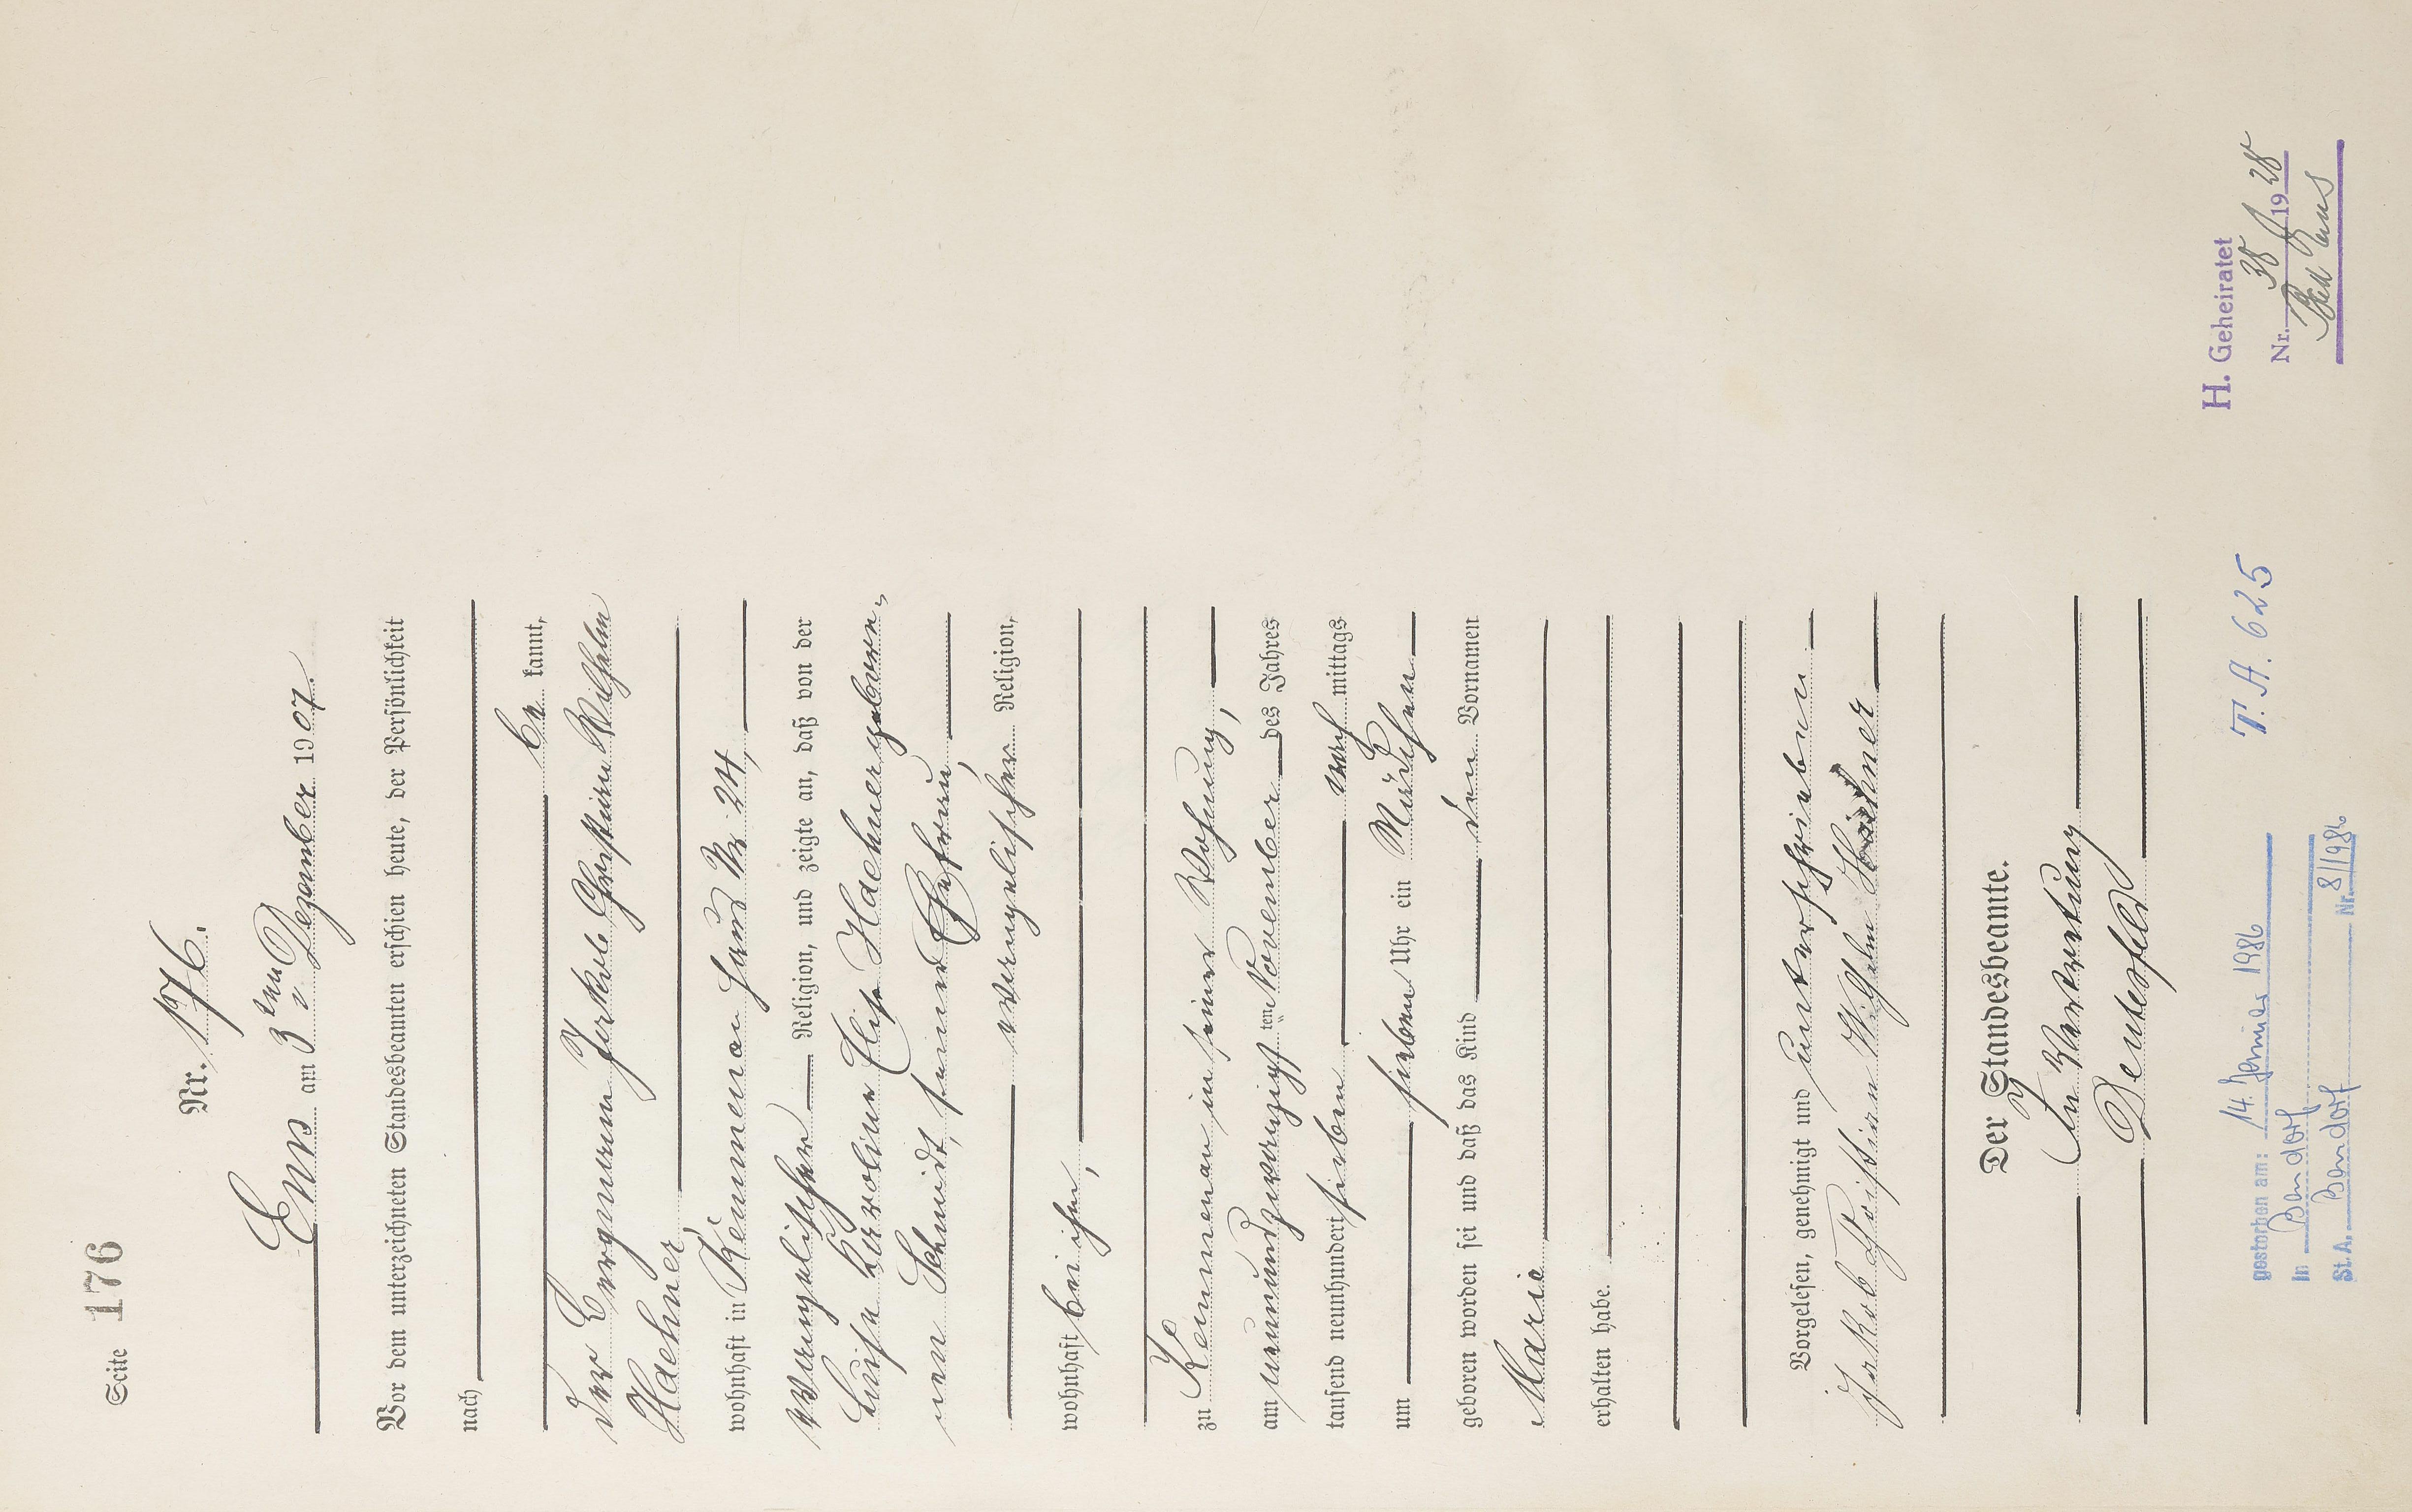 Seite 176
Nr. 176.
Ems am 3ten Dezember 1907.
Vor dem unterzeichneten Standesbeamten erschien heute, der Persönlichkeit
nach
be kannt,
der Bergmann Jakob Christian Wilhelm
Haehner,
wohnhaft in Kemmenau Haus Nr. 24,
evangelischer Religion, und zeigte an, daß von der
Luise Karoline Elise Haehner gebore-
nen Schmidt, seiner Ehefrau,
evangelischer Religion,
wohnhaft bei ihm,
zu Kemmenau in seiner Wohnung,
am neunundzwanzigsten November des Jahres
tausend neunhundert sieben nach mittags
um sieben Uhr ein Mädchen
geboren worden sei und daß das Kind den Vornamen
Marie
erhalten habe.
Vorgelesen, genehmigt und unterschrieben
Jakob Christian Wilhelm Haehner
Der Standesbeamte.
In Vertretung
Deutesfeld
gestorben am: 14. Januar 1986
in Bendorf
St. A. Bendorf Nr. 8/1986
T. A. 625
H. Geheiratet
Nr. 38 1928
Bad Ems